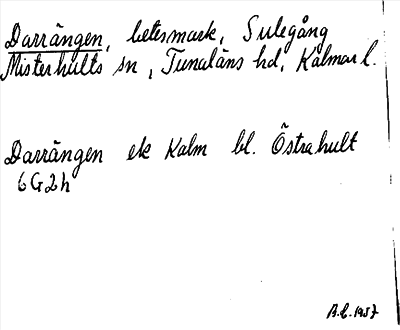 Darrängen, betesmark, Sulegång
Misterhults sn, Tunaläns hd, Kalmar l.
Darrängen ek Kalm bl. Östrahult
6G2h
B.L. 1957